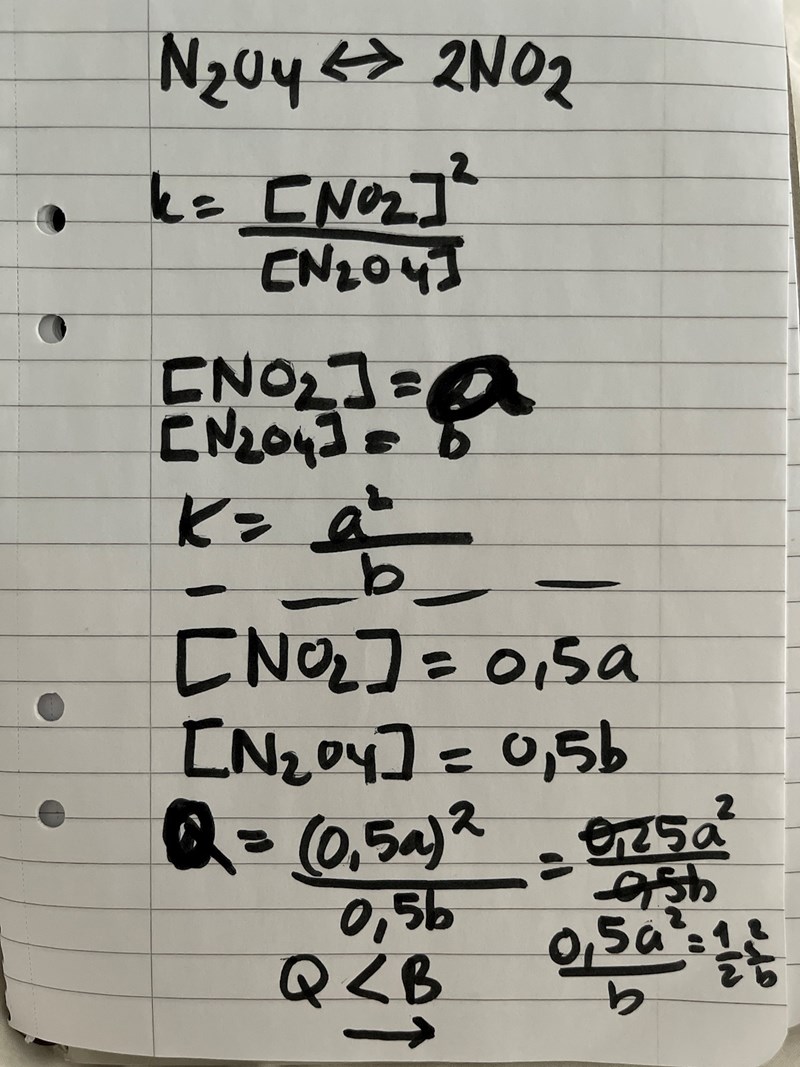 N₂O₄ ↔ 2NO₂
k = [NO₂]² / [N₂O₄]
[NO₂] = a
[N₂O₄] = b
K = a² / b
[NO₂] = 0,5a
[N₂O₄] = 0,5b
Q = (0,5a)² / 0,5b = 0,25a² / 0,5b
0,5a² / b = 1/2
Q < B
→